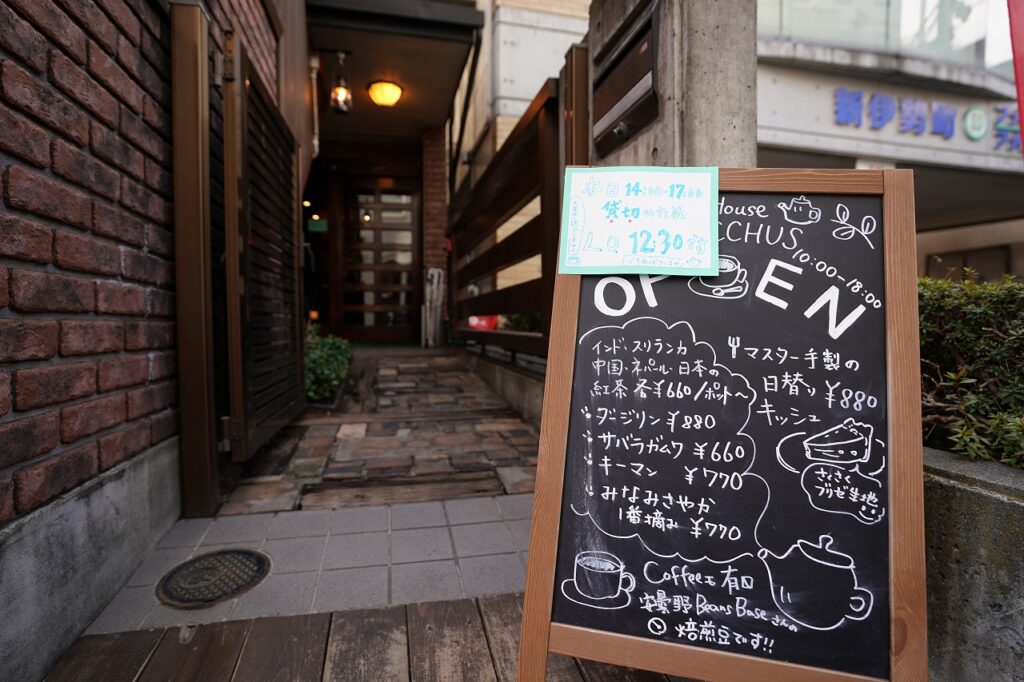 本日14:00-17:00
貸切のため
L.O. 12:30
House
CHUS
10:00-18:00
OPEN
インド・スリランカ
中国・ネパール・日本の
紅茶 各¥660/ポット〜
ダージリン ¥880
サバラガムワ ¥660
キーマン ¥770
みなみさやか
1番摘み ¥770
マスター手製の
日替り ¥880
キッシュ
さくさく
ブリゼ生地
Coffeeも有ロ
安曇野Beans Baseさんの
焙煎豆です!!
新伊勢町